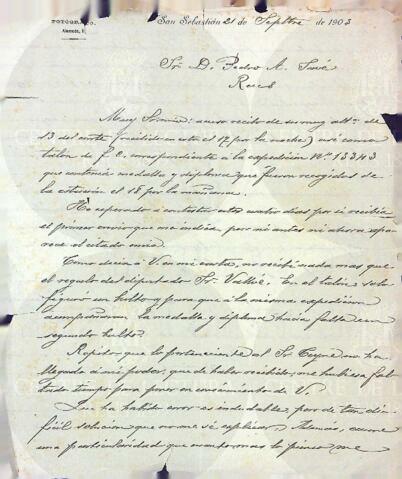 FOTÓGRAFO.
San Sebastián 21 de Septbre de 1903
Sr. D. Pedro A. Savé
Reus
Muy Sr. mío: acuso recibo de su muy atta. de
13 del corte (recibido en este el 17 por la noche) así como
talon de f. c. correspondiente a la expedición Nº. 13343
que contenía medalla y diploma que fueron recogidos de
la estación el 18 por la mañana.
He esperado a contestar estos cuatro días por si recibía
el primer envío que me indica, pero ni antes ni ahora apa-
rece el citado envío.
Como decía a V. en mi carta, no recibí nada mas que
el regalo del diputado Sr. Vallés. En el talón solo
figura un bulto y para que a la misma expedición
acompañaran la medalla y diploma hacía falta un
segundo bulto.
Repito que lo perteneciente al Sr. no ha
llegado a mi poder, que de haber recibido, me hubiese fal-
tado tiempo para poner en conocimiento de V.
Que ha habido error es indudable, pero de tan di-
fícil solución que no me sé explicar. Además, ocurre
una particularidad que cuanto mas lo pienso me